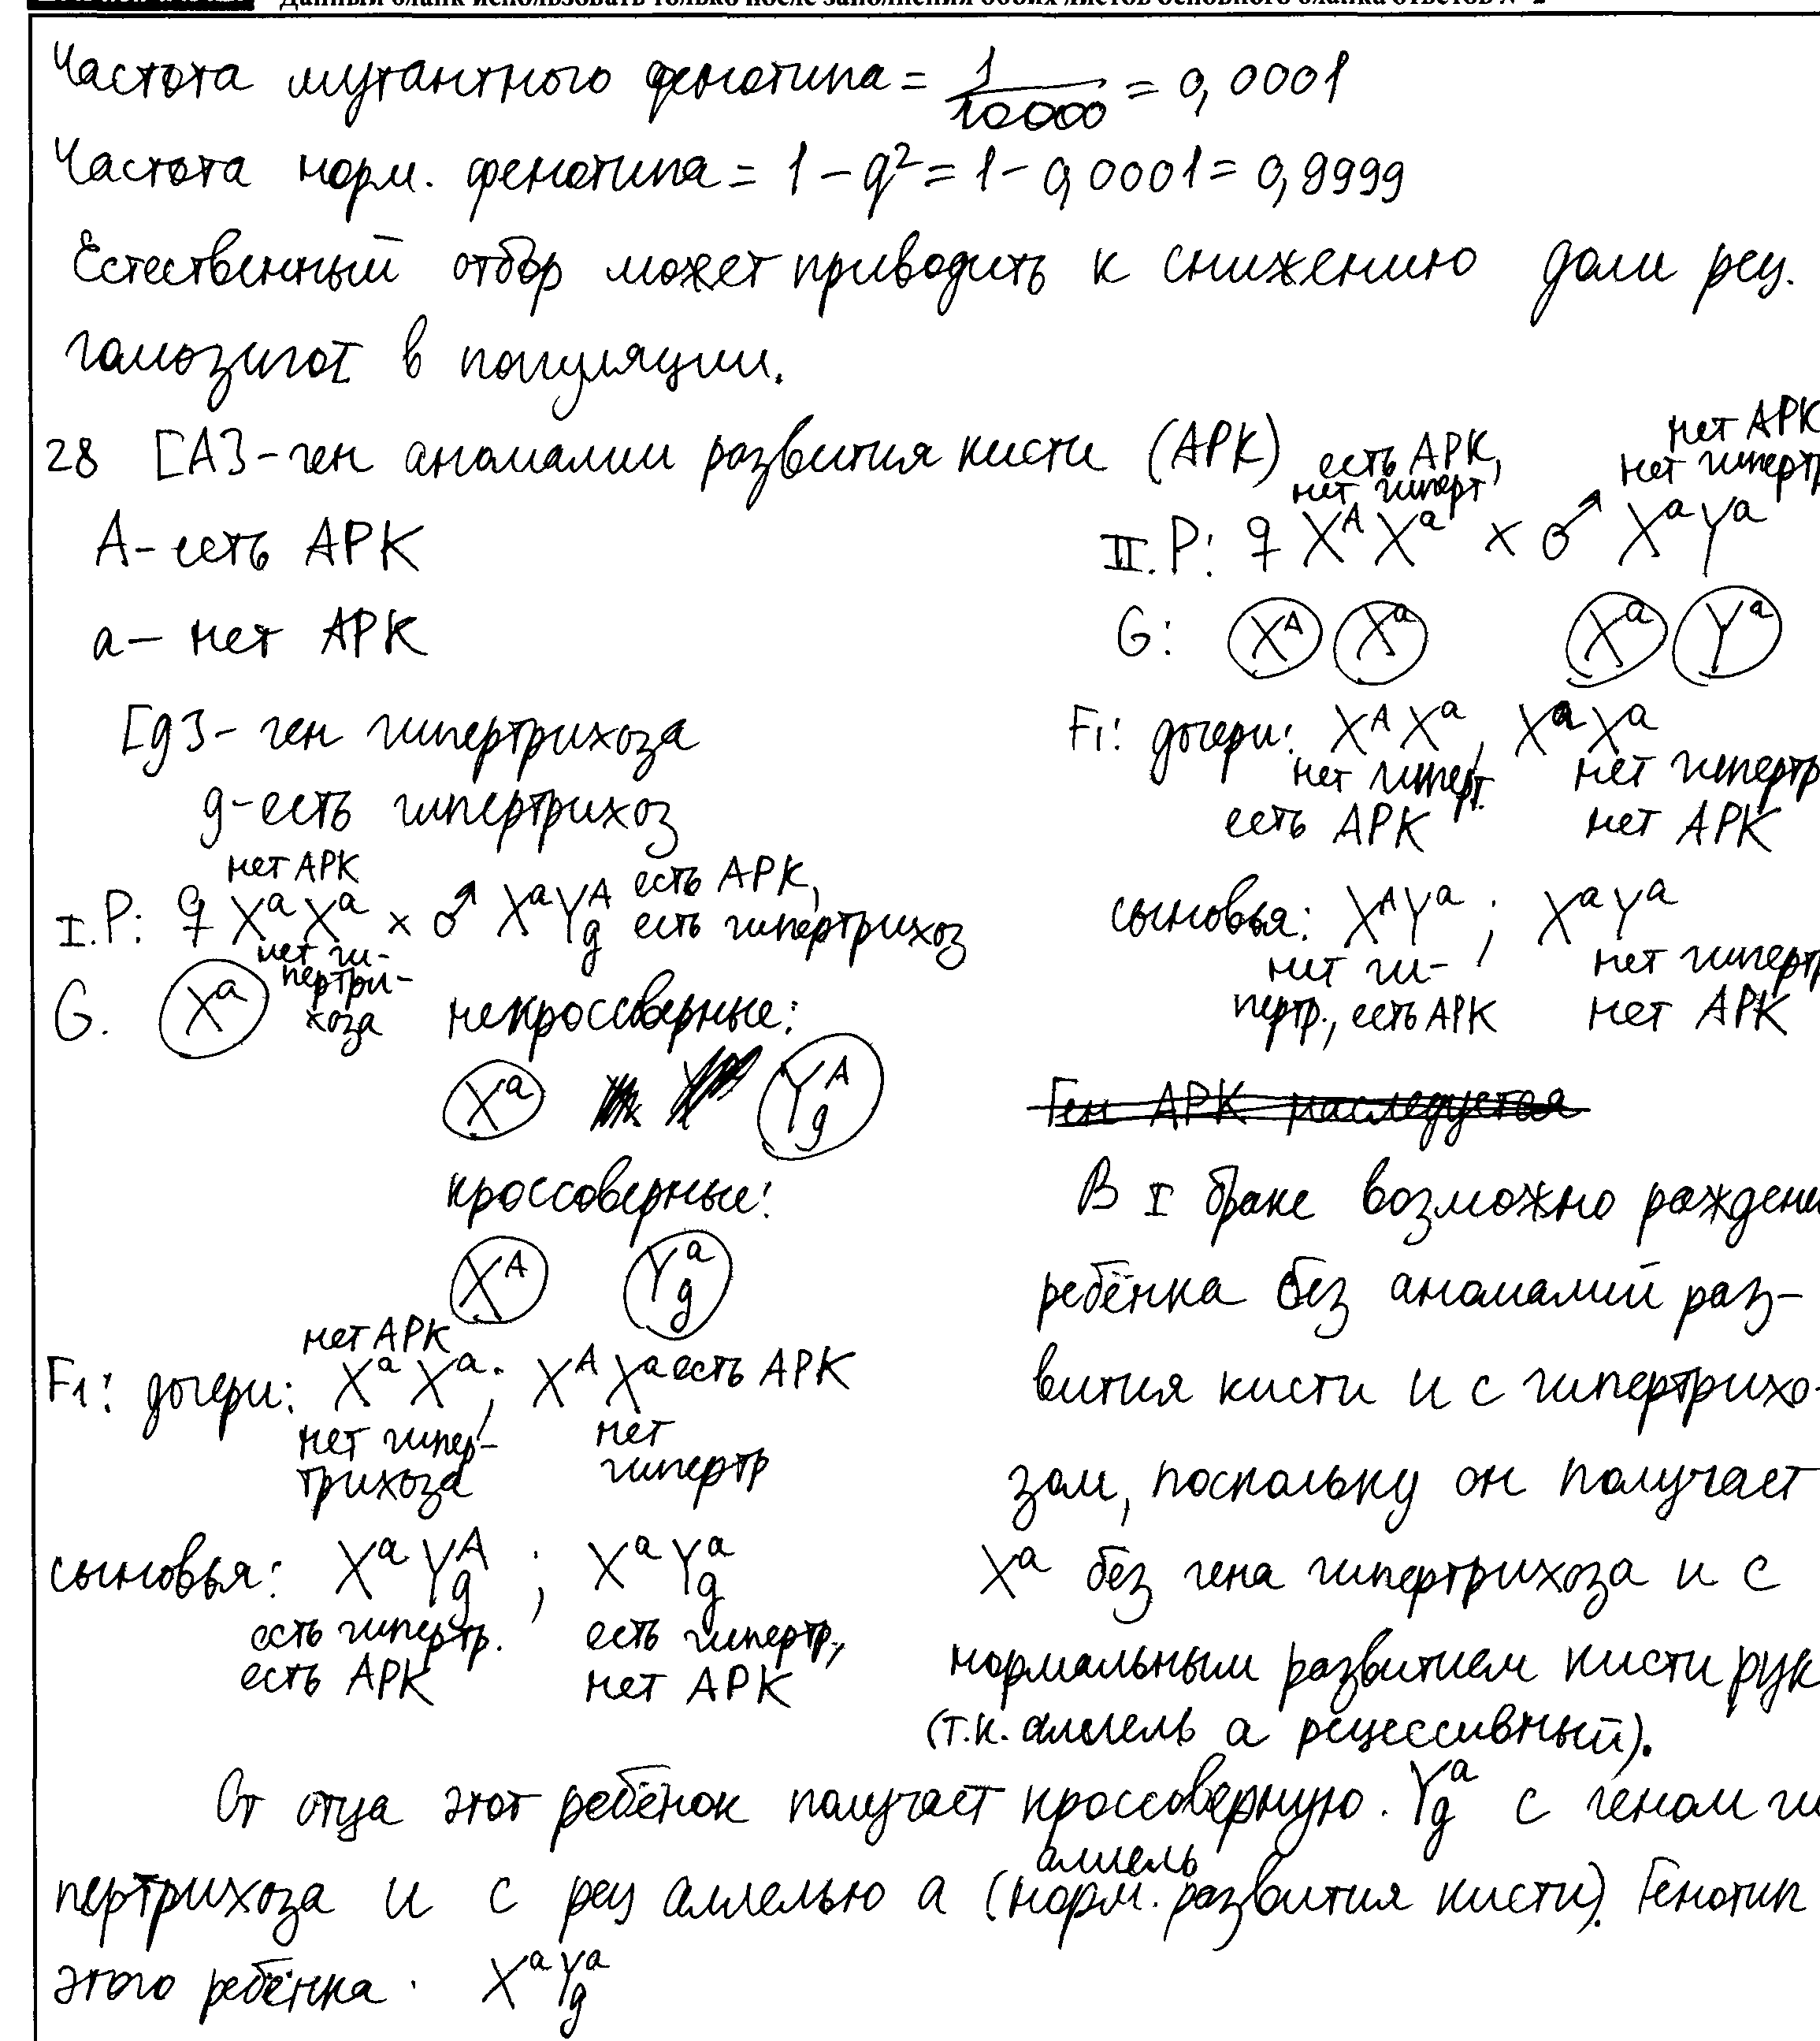 Данный бланк использовать только после заполнения обоих листов основного бланка ответов № 2
Частота мутантного фенотипа = 1/10000 = 0,0001
Частота норм. фенотипа = 1 - q² = 1 - 0,0001 = 0,9999
Естественный отбор может приводить к снижению доли рец.
гомозигот в популяции.
28 [A] - ген аномалии развития кисти (АРК)
А - есть АРК
а - нет АРК
[g] - ген гипертрихоза
g - есть гипертрихоз
нет АРК
I. P: ♀ XᵃXᵃ × ♂ XᵃYᴬg есть АРК,
есть гипертрихоз
нет ги-
пертри-
хоза
G. Xᵃ некроссверные:
Xᵃ Yᴬg
кроссоверные:
Xᴬ Yᵃg
нет АРК
F1: дочери: XᵃXᵃ; XᴬXᵃ есть АРК
нет гипер-
трихоза
нет
гипертр
сыновья: XᵃYᴬg ; XᵃYᵃg
есть гипертр. есть гипертр.,
есть АРК нет АРК
есть АРК,
нет гиперт
нет АРК
нет гипертр
II. P: ♀ XᴬXᵃ × ♂ XᵃYᵃ
G: Xᴬ Xᵃ Xᵃ Yᵃ
F1: дочери: XᴬXᵃ, XᵃXᵃ
нет гиперт. нет гипертр
есть АРК нет АРК
сыновья: XᴬYᵃ ; XᵃYᵃ
нет ги-
пертр., есть АРК
нет гипертр
нет АРК
Ген АРК наследуется
В I браке возможно рождени
ребёнка без аномалий раз-
вития кисти и с гипертрихо-
зом, поскольку он получает
Xᵃ без гена гипертрихоза и с
нормальным развитием кисти рук
(т.к. аллель а рецессивный).
От отца этот ребёнок получает кроссоверную. Yᵃg с геном ги
пертрихоза и с рец аллелью а (аллель норм. развития кисти). Генотип
этого ребёнка. XᵃYᵃg